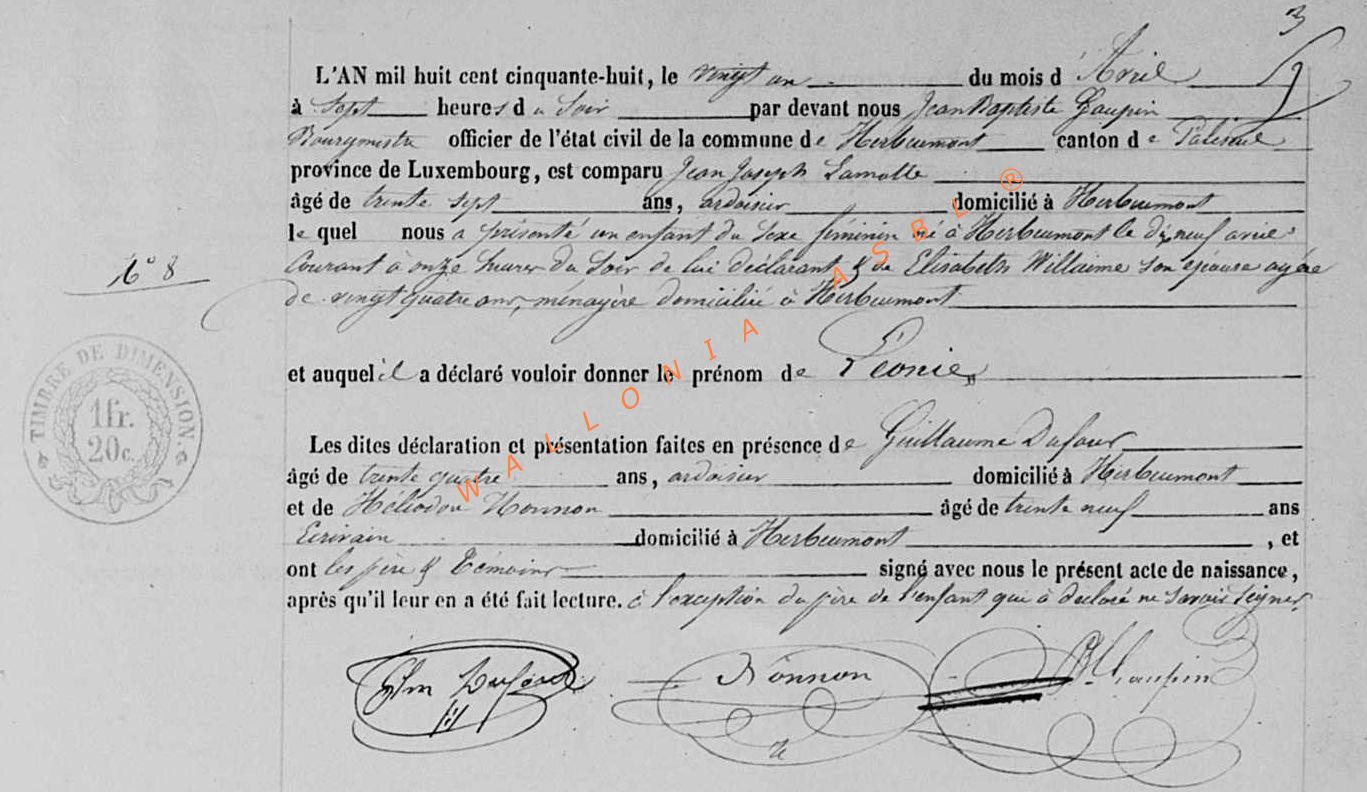 3
L'AN mil huit cent cinquante-huit, le vingt un du mois d'Avril
à Sept heures du Soir par devant nous Jean Baptiste Gaupin
Bourgmestre officier de l'état civil de la commune de Herbeumont canton de Paliseul
province de Luxembourg, est comparu Jean Joseph Lamotte
âgé de trente sept ans, ardoisier domicilié à Herbeumont
le quel nous a présenté un enfant du Sexe féminin né à Herbeumont le dixneuf avril
Courant à onze heures du Soir de lui déclarant & de Elisabeth Willaime son épouse agée
N° 8
de vingt quatre ans, ménagère domiciliée à Herbeumont
et auquel il a déclaré vouloir donner le prénom de Léonie
TIMBRE DE DIMENSION.
1 fr.
20 c.
Les dites déclaration et présentation faites en présence de Guillaume Dufour
âgé de trente quatre ans, ardoisier domicilié à Herbeumont
et de Héliodore Nonnon âgé de trente neuf ans
Ecrivain domicilié à Herbeumont, et
ont les père & Témoins signé avec nous le présent acte de naissance,
après qu'il leur en a été fait lecture. à l'exception du père de l'enfant qui à déclaré ne savoir signer
Glm Dufour
Nonnon
Gaupin
WALLONIA ASBL ®